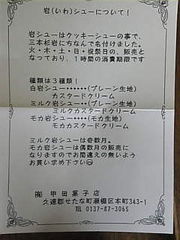 岩(いわ)シューについて!
岩シューはクッキーシューの事で、
三本杉岩にちなんで名付けました。
火・木・土・日・祝祭日の、販売と
なっており、1時間の消費期限です
種類は3種類!
白岩シュー・・・・・・(プレーン生地)
カスタードクリーム
ミルク岩シュー・・・・(プレーン生地)
ミルクカスタードクリーム
モカ岩シュー・・・・・(モカ生地)
モカカスタードクリーム
ミルク岩シューは奇数月。
モカ岩シューは偶数月の販売に
なりますのでお間違えの無いよう
お買い求め下さい
㈲ 甲田菓子店
久遠郡せたな町瀬棚区本町343-1
TEL 0137-87-3065